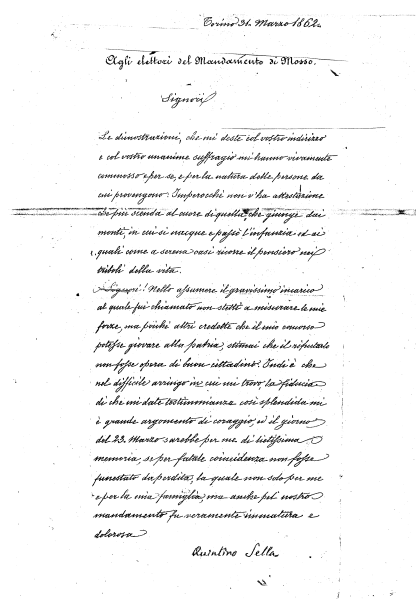 Torino 31. Marzo 1862.
Agli elettori del Mandamento di Mosso.
Signori
Le dimostrazioni, che mi deste col vostro indirizzo
e col vostro unanime suffragio mi hanno vivamente
commosso e per se, e per la natura delle persone da
cui provengono. Imperocchè non v'ha attestazione
che più scenda al cuore di quella che giunge dai
monti, in cui si nacque e passò l'infanzia ed ai
quali come a serena oasi ricorre il pensiero nei
triboli della vita.
Signori! Nello assumere il gravissimo incarico
al quale fui chiamato non stetti a misurare le mie
forze, ma poichè altri credette che il mio concorso
potesse giovare alla patria, stimai che il rifiutarlo
non fosse opera di buon cittadino. Indi è che
nel difficile arringo in cui mi trovo, la fiducia
di che mi date testimonianza così splendida mi
è grande argomento di coraggio, ed il giorno
del 23. Marzo sarebbe per me di lietissima
memoria, se per fatale coincidenza non fosse
funestato da perdita, la quale non solo per me
e per la mia famiglia, ma anche pel nostro
mandamento fu veramente immatura e
dolorosa
Quintino Sella